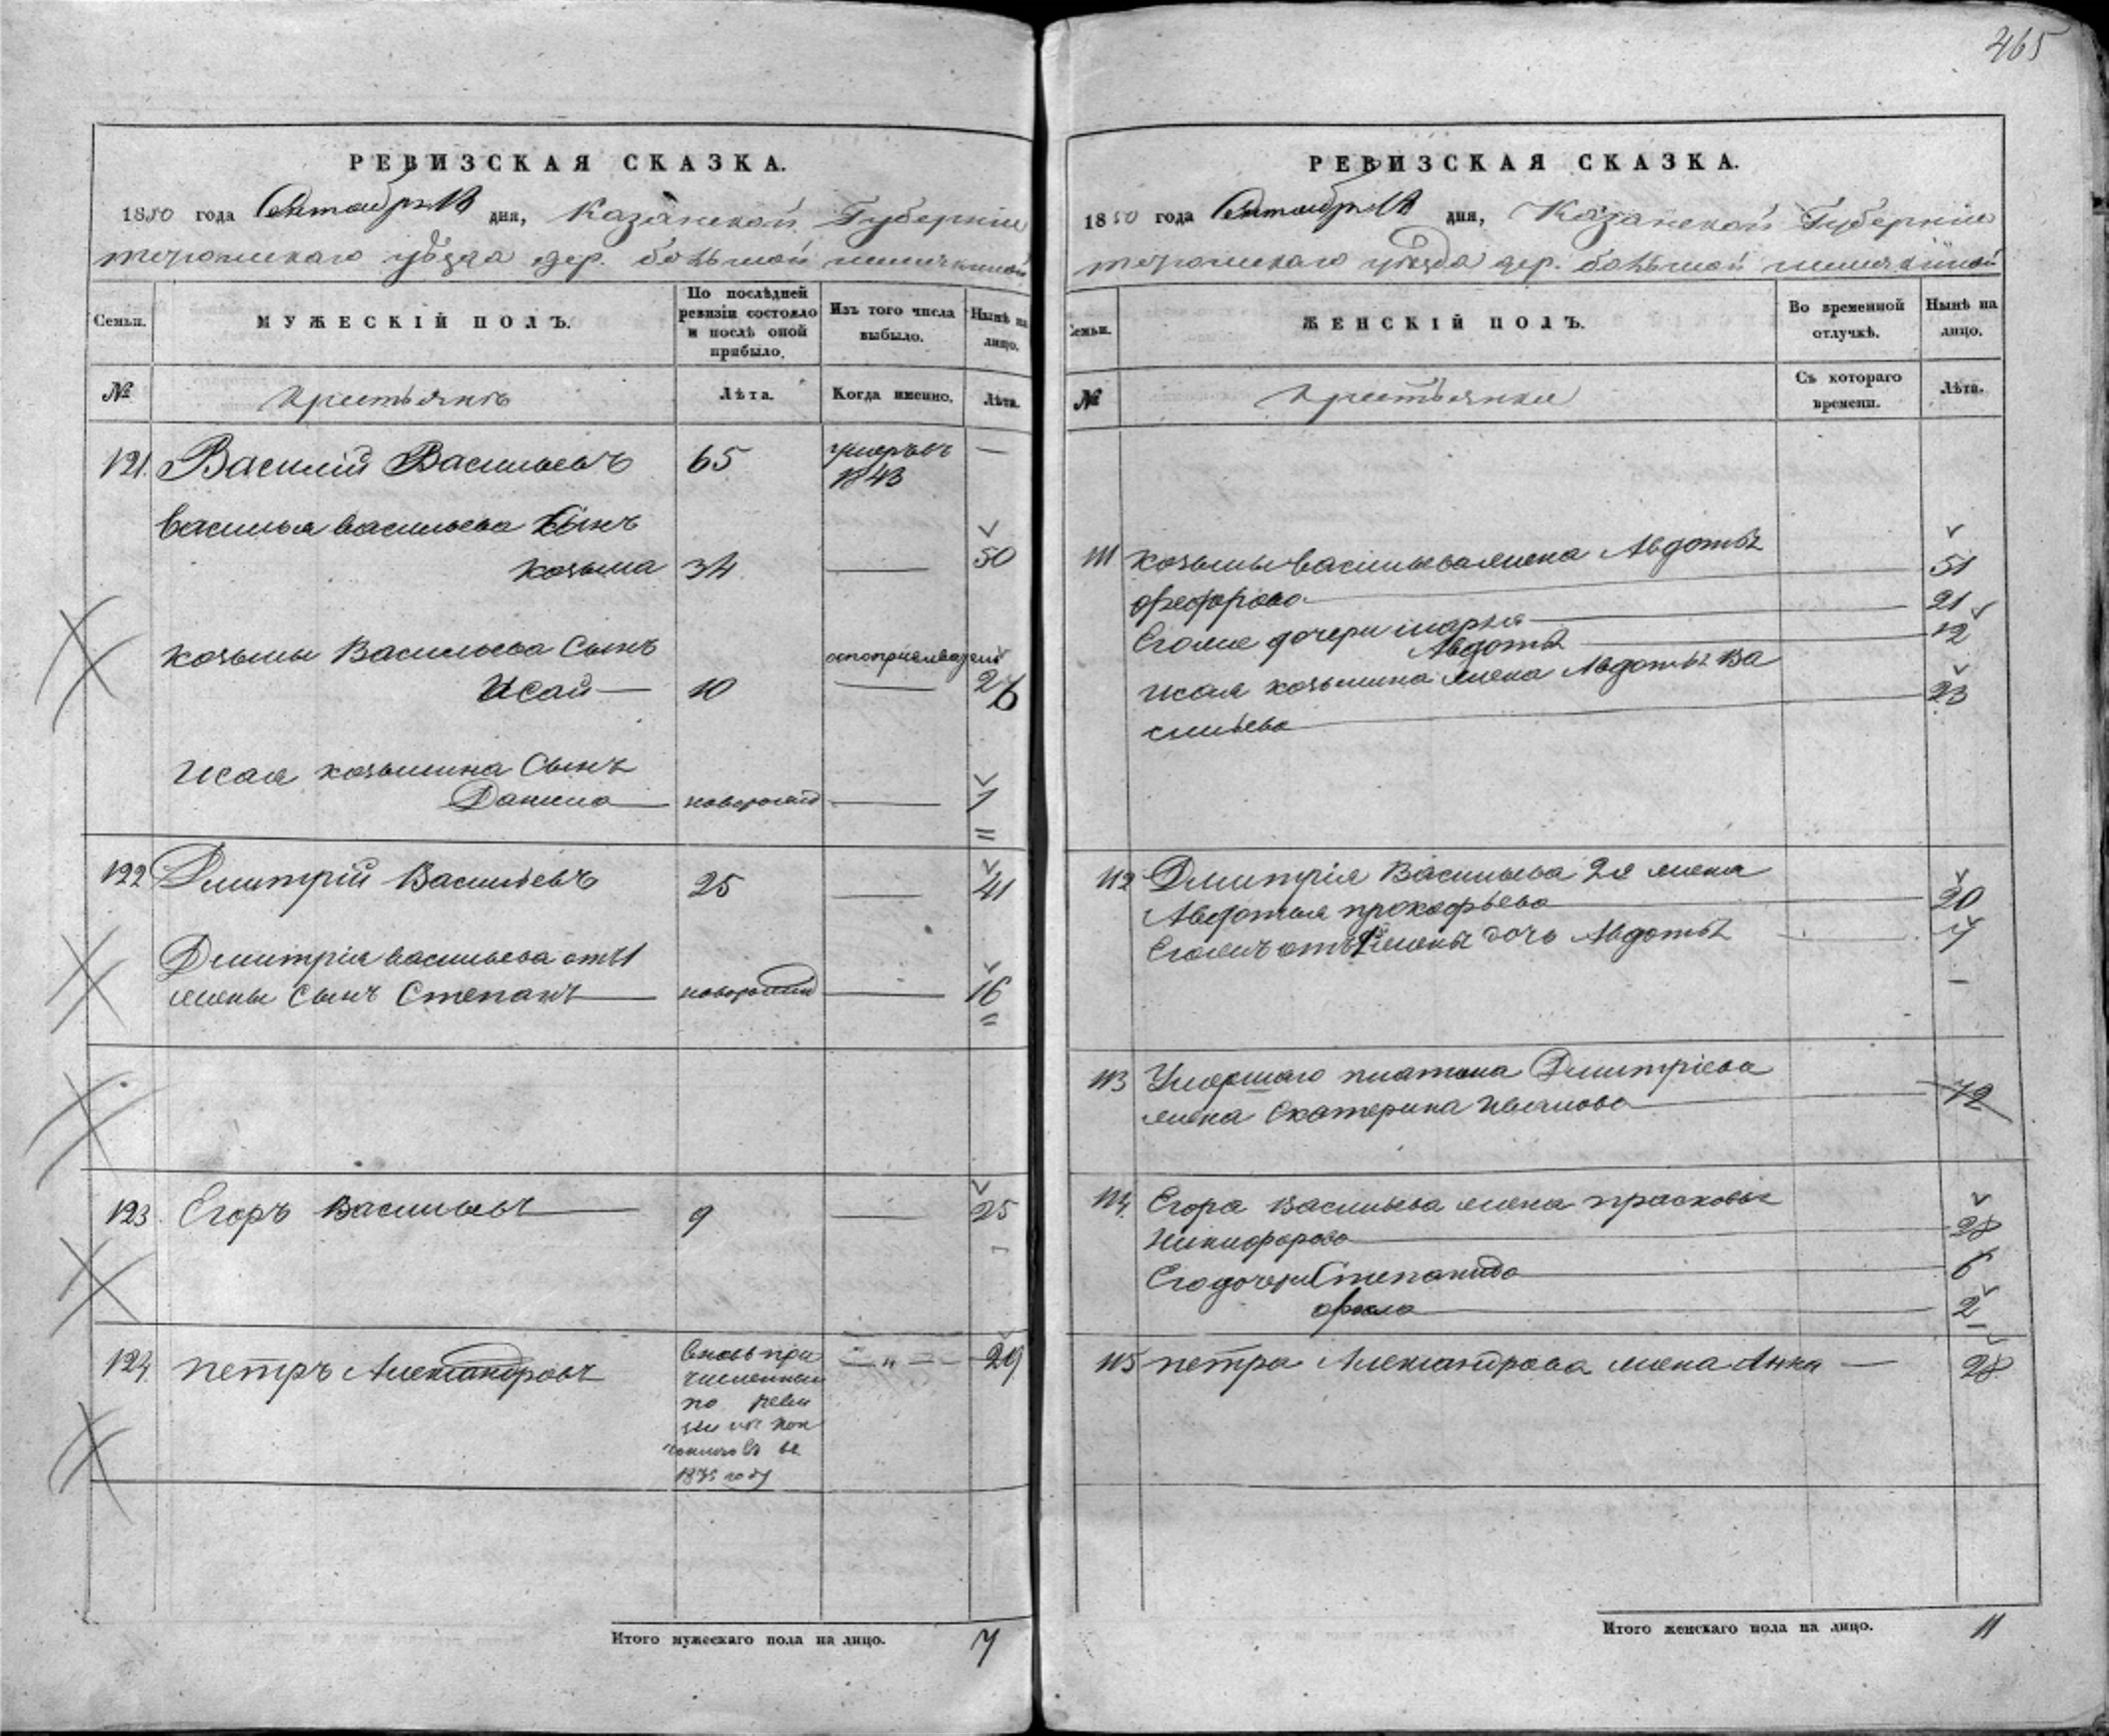 465
РЕВИЗСКАЯ СКАЗКА.
1850 года Сентября 18 дня, Казанской Губернiи
уѣзда дер. большой
Семьи.
МУЖЕСКIЙ ПОЛЪ.
По послѣдней ревизiи состояло и послѣ оной прибыло.
Изъ того числа выбыло.
Нынѣ на лицо.
№
Крестьянъ
Лѣта.
Когда именно.
Лѣта.
121. Василiй Васильевъ 65 умеръ въ 1843 —
Василья Васильева Сынъ
Козьма 34 — 50
Козьмы Васильева Сынъ
Исай — 10 —
Исая Козьмина Сынъ
Данило — новорожд — 1
122 Дмитрiй Васильевъ 25 — 41
Дмитрiя Васильева отъ 1
жены Сынъ Степанъ — новорожд — 16
123. Егоръ Васильевъ — 9 — 25
124. Петръ Александровъ
вновь при
численный
по реви
зiи
1835 году
— „ — 29
Итого мужескаго пола на лицо. 7
РЕВИЗСКАЯ СКАЗКА.
1850 года Сентября 18 дня, Казанской Губернiи
уѣзда дер. большой
Семьи.
ЖЕНСКIЙ ПОЛЪ.
Во временной отлучкѣ.
Нынѣ на лицо.
№
Крестьянки
Съ котораго времени.
Лѣта.
111 Козьмы Васильева жена Авдотья
Федорова — 51
Егоже дочери Марья — 21
Авдотья — 12
Исая Козьмина жена Авдотья Ва
сильева — 23
112 Дмитрiя Васильева 2я жена
Авдотья Прокофьева — 20
Егожъ отъ 1 жены дочь Авдотья — 17
113 Умершаго Платона Дмитрiева
жена Екатерина Иванова — 72
114. Егора Васильева жена Прасковья
Никифорова — 28
Его дочери Степанида — 6
Фекла — 2
115 Петра Александрова жена Анна — 28
Итого женскаго пола на лицо. 11